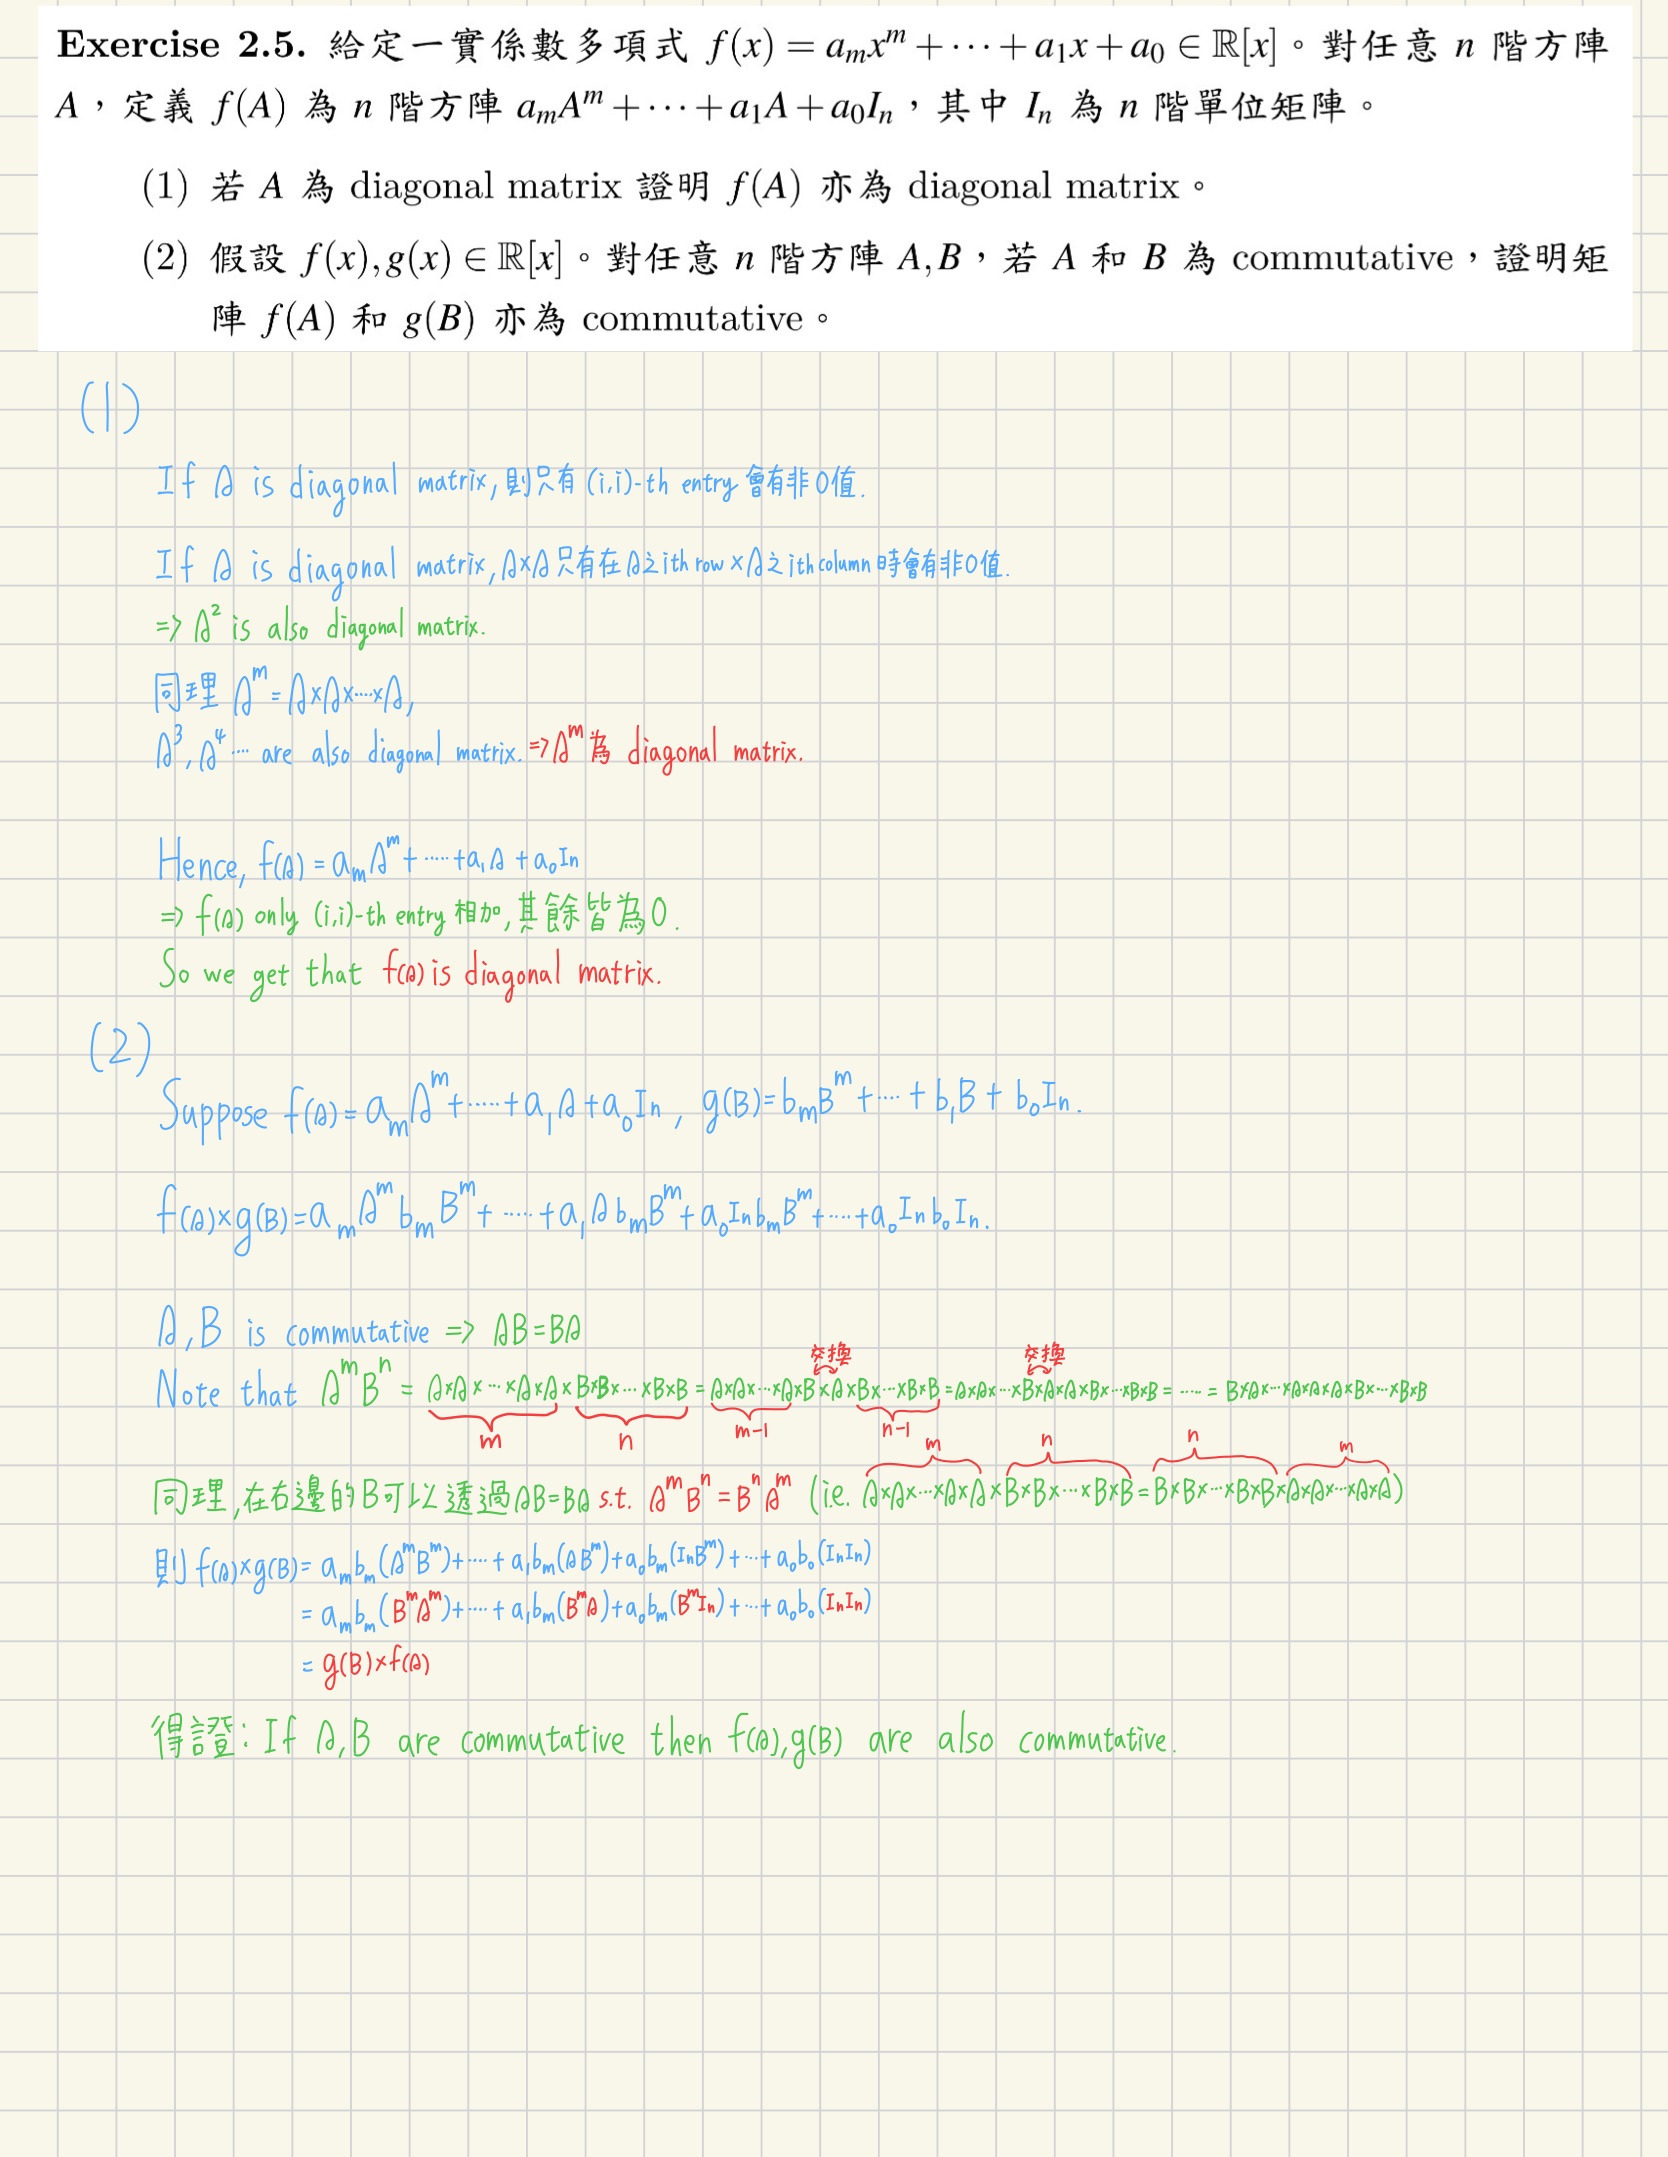 Exercise 2.5. 給定一實係數多項式 f(x) = a_m x^m + ··· + a_1 x + a_0 ∈ ℝ[x]。對任意 n 階方陣
A，定義 f(A) 為 n 階方陣 a_m A^m + ··· + a_1 A + a_0 I_n，其中 I_n 為 n 階單位矩陣。
(1) 若 A 為 diagonal matrix 證明 f(A) 亦為 diagonal matrix。
(2) 假設 f(x), g(x) ∈ ℝ[x]。對任意 n 階方陣 A, B，若 A 和 B 為 commutative，證明矩
陣 f(A) 和 g(B) 亦為 commutative。
(1)
If A is diagonal matrix, 則只有 (i,i)-th entry 會有非0值.
If A is diagonal matrix, A×A 只有在 A之 ith row × A之 ith column 時會有非0值.
=> A^2 is also diagonal matrix.
同理 A^m = A×A×····×A,
A^3, A^4 ···· are also diagonal matrix. => A^m 為 diagonal matrix.
Hence, f(A) = a_m A^m + ····· + a_1 A + a_0 I_n
=> f(A) only (i,i)-th entry 相加, 其餘皆為0.
So we get that f(A) is diagonal matrix.
(2)
Suppose f(A) = a_m A^m + ····· + a_1 A + a_0 I_n , g(B) = b_m B^m + ···· + b_1 B + b_0 I_n.
f(A)×g(B) = a_m A^m b_m B^m + ····· + a_1 A b_m B^m + a_0 I_n b_m B^m + ···· + a_0 I_n b_0 I_n.
A, B is commutative => AB = BA
交換 交換
Note that A^m B^n = A×A×···×A×A×B×B×···×B×B = A×A×···×A×B×A×B×···×B×B = A×A×···×B×A×A×B×···B×B = ····· = B×A×···×A×A×A×B×···×B×B
m n m-1 n-1
m n n m
同理, 在右邊的B可以透過 AB=BA s.t. A^m B^n = B^n A^m (i.e. A×A×···×A×A×B×B×···×B×B = B×B×···×B×B×A×A×···×A×A)
則 f(A)×g(B) = a_m b_m (A^m B^m) + ···· + a_1 b_m (A B^m) + a_0 b_m (I_n B^m) + ··· + a_0 b_0 (I_n I_n)
= a_m b_m (B^m A^m) + ···· + a_1 b_m (B^m A) + a_0 b_m (B^m I_n) + ··· + a_0 b_0 (I_n I_n)
= g(B)×f(A)
得證: If A, B are commutative then f(A), g(B) are also commutative.